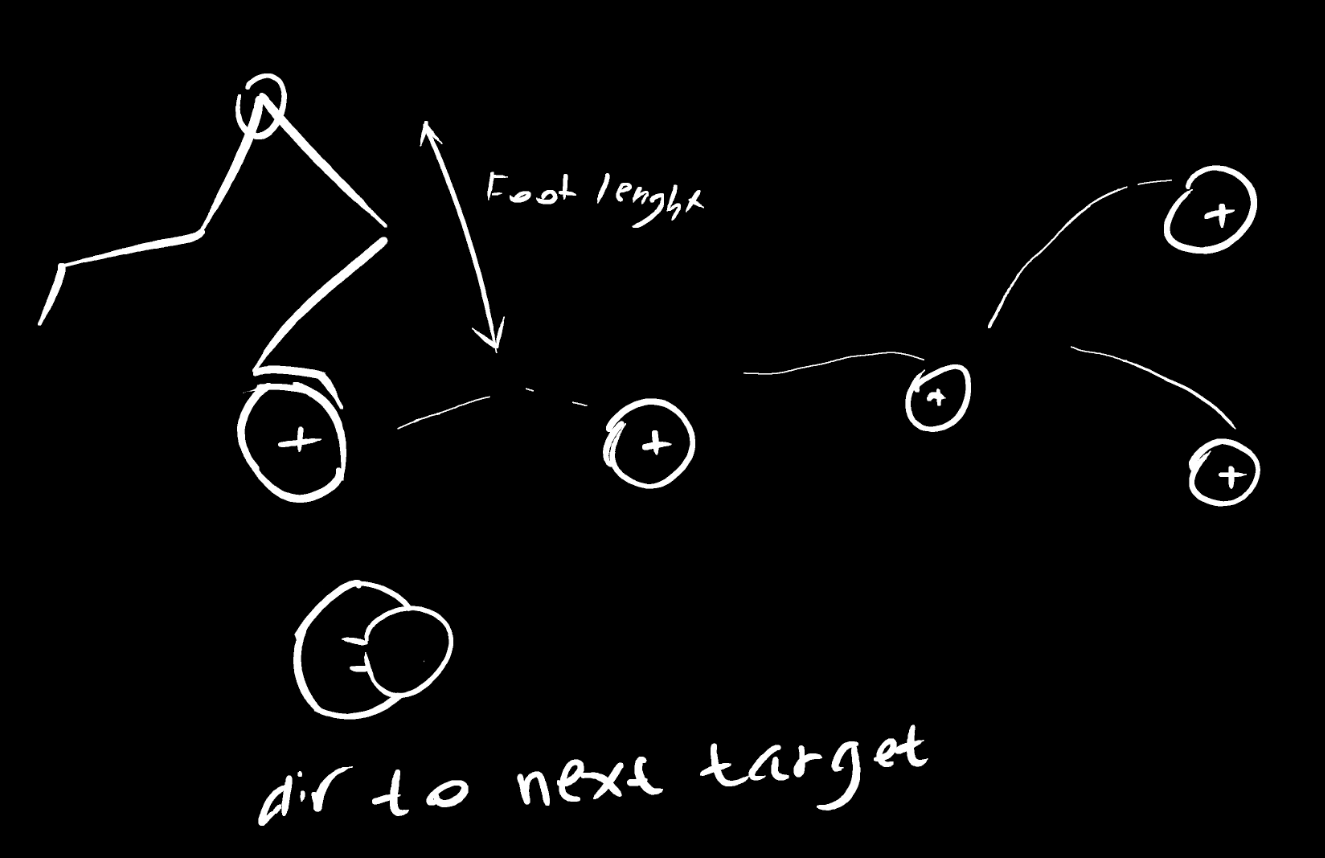 Foot lenght
dir to next target